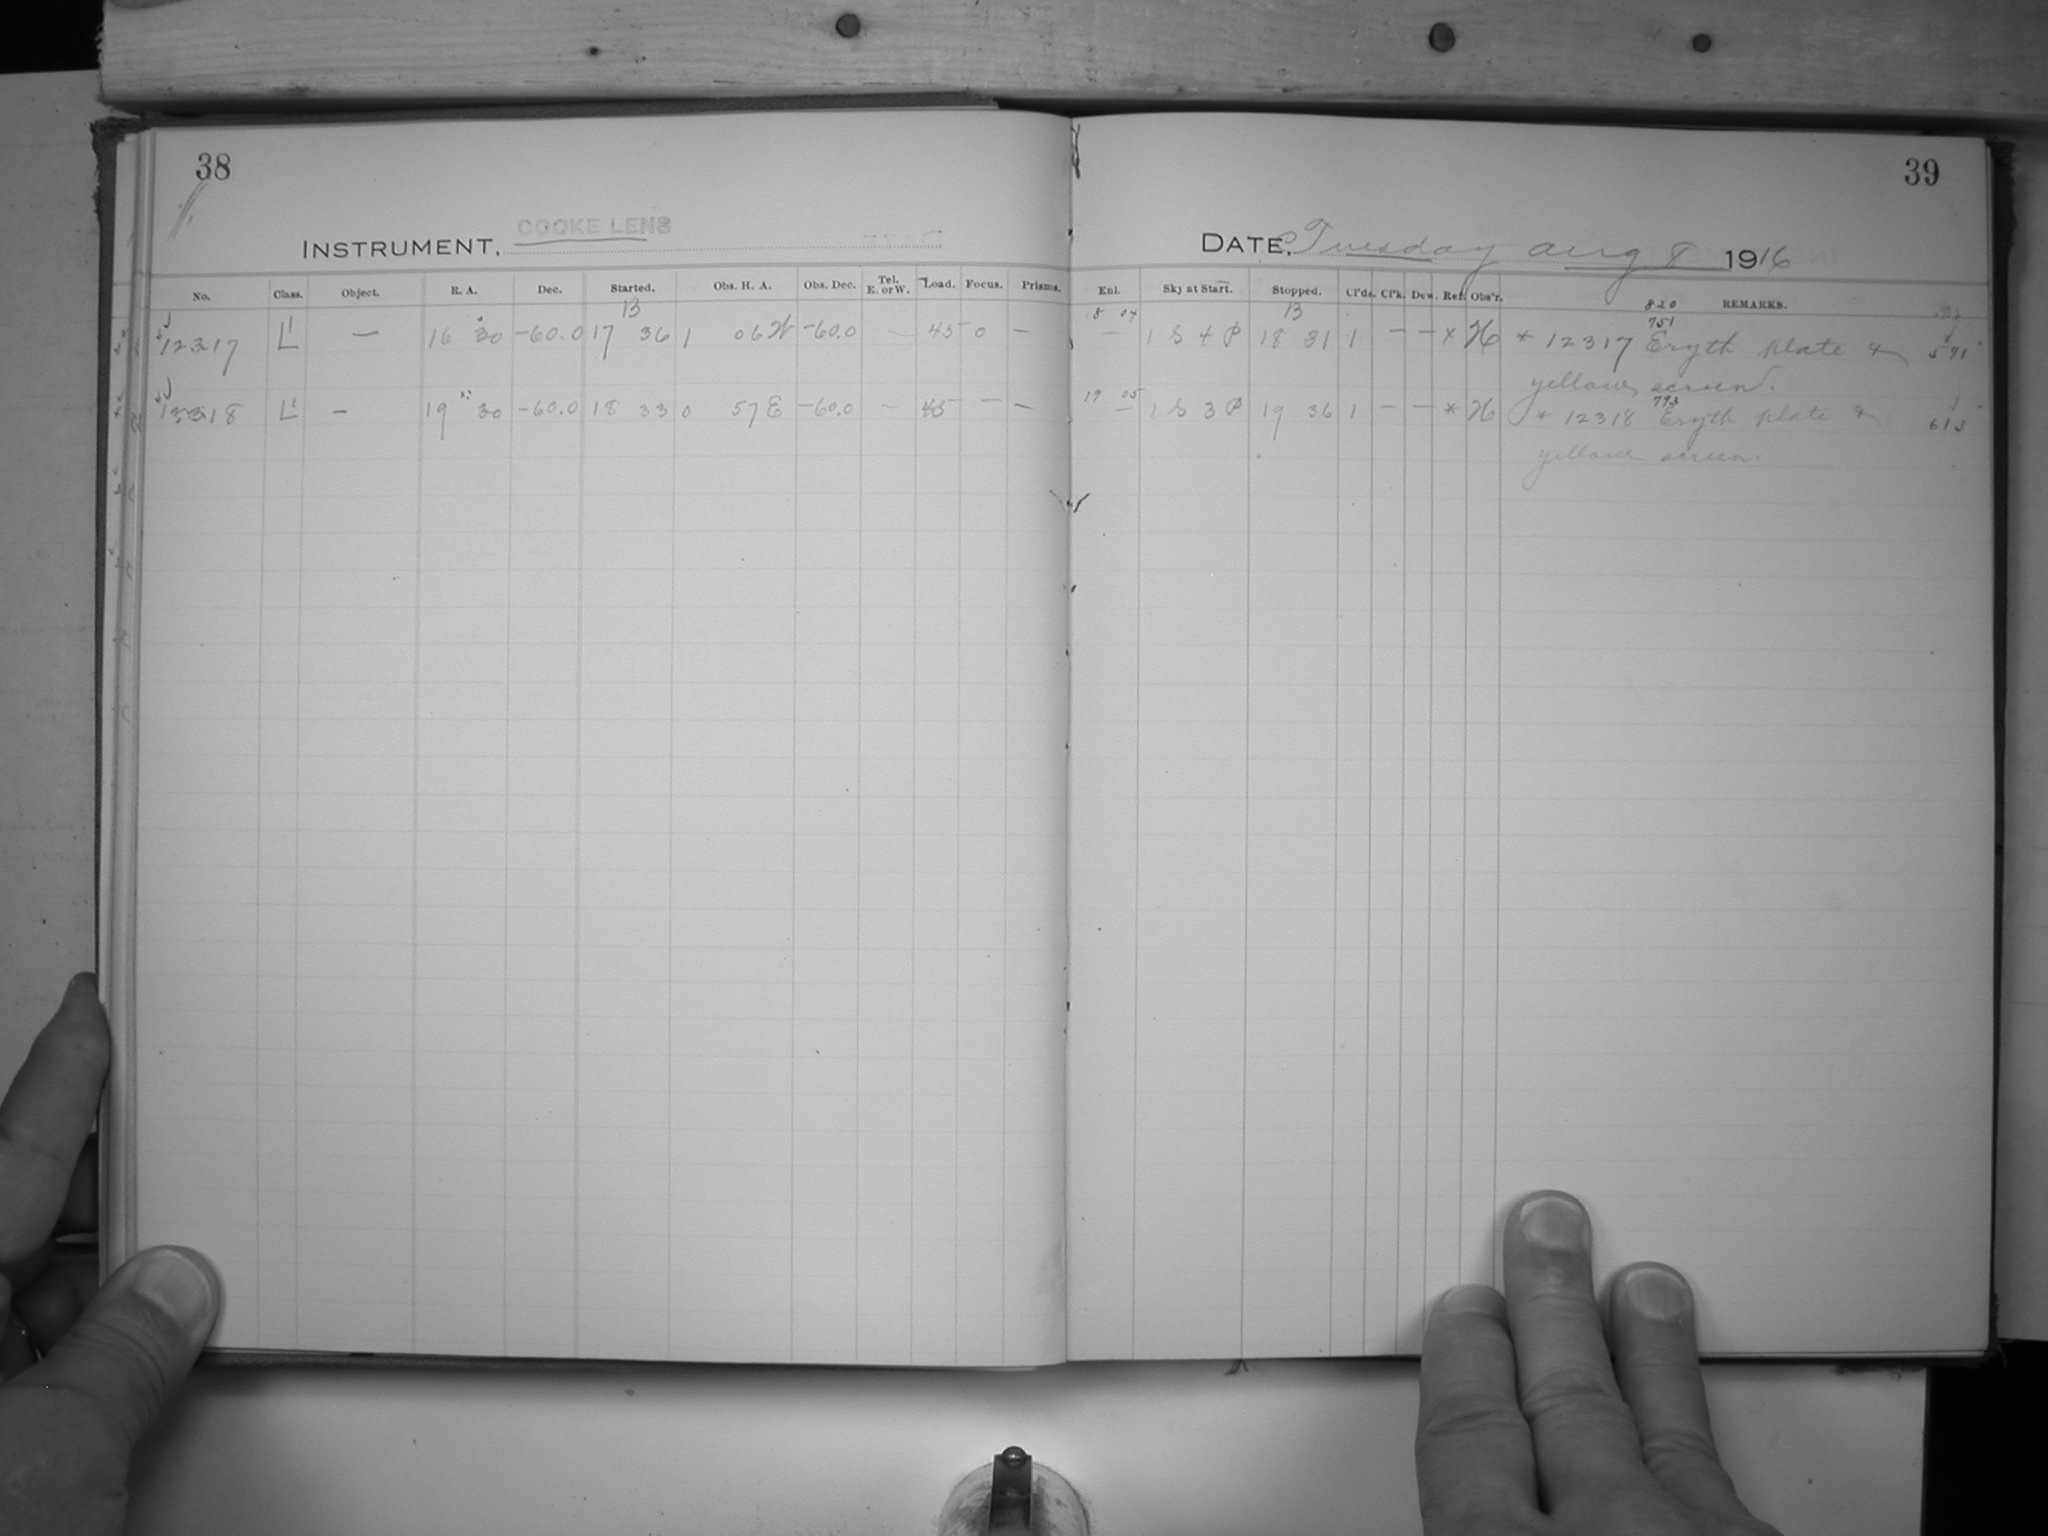 38
INSTRUMENT, COOKE LENS
No. Class. Object. R. A. Dec. Started. Obs. H. A. Obs. Dec. Tel. E. or W. Load. Focus. Prisms.
B
12317 L' — 16 30 -60.0 17 36 1 06 W -60.0 — 45 0 —
12318 L' — 19 30 -60.0 18 33 0 57 E -60.0 — 45 — —
39
DATE, Tuesday Aug 8 1916
Enl. Sky at Start. Stopped. Cl'ds. Cl'k. Dew. Ref. Obs'r. REMARKS.
820
18 04 B 751
— 1 S 4 P 18 31 1 — — * H * 12317 Eryth plate & 591
yellow screen.
19 05 793
— 1 S 3 P 19 36 1 — — * H * 12318 Eryth plate & 613
yellow screen.